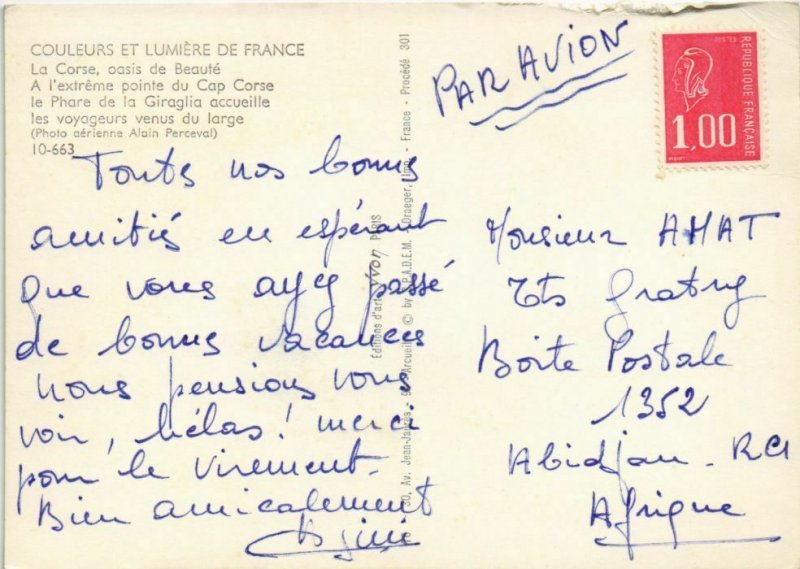 COULEURS ET LUMIÈRE DE FRANCE
La Corse, oasis de Beauté
A l'extrême pointe du Cap Corse
le Phare de la Giraglia accueille
les voyageurs venus du large
(Photo aérienne Alain Perceval)
10-663
Toutes nos bonnes
amitiés en espérant
que vous ayez passé
de bonnes vacances
nous pensions vous
voir, hélas! merci
pour le virement.
Bien amicalement
Editions d'art Yvon PARIS
30, Av. Jean-Jaurès - Arcueil © by S.P.A.D.E.M. Draeger, Imp. France - Procédé 301
PAR AVION
POSTES
REPUBLIQUE FRANÇAISE
1,00
Monsieur AMAT
Ets Gratry
Boite Postale
1352
Abidjan - RCI
Afrique